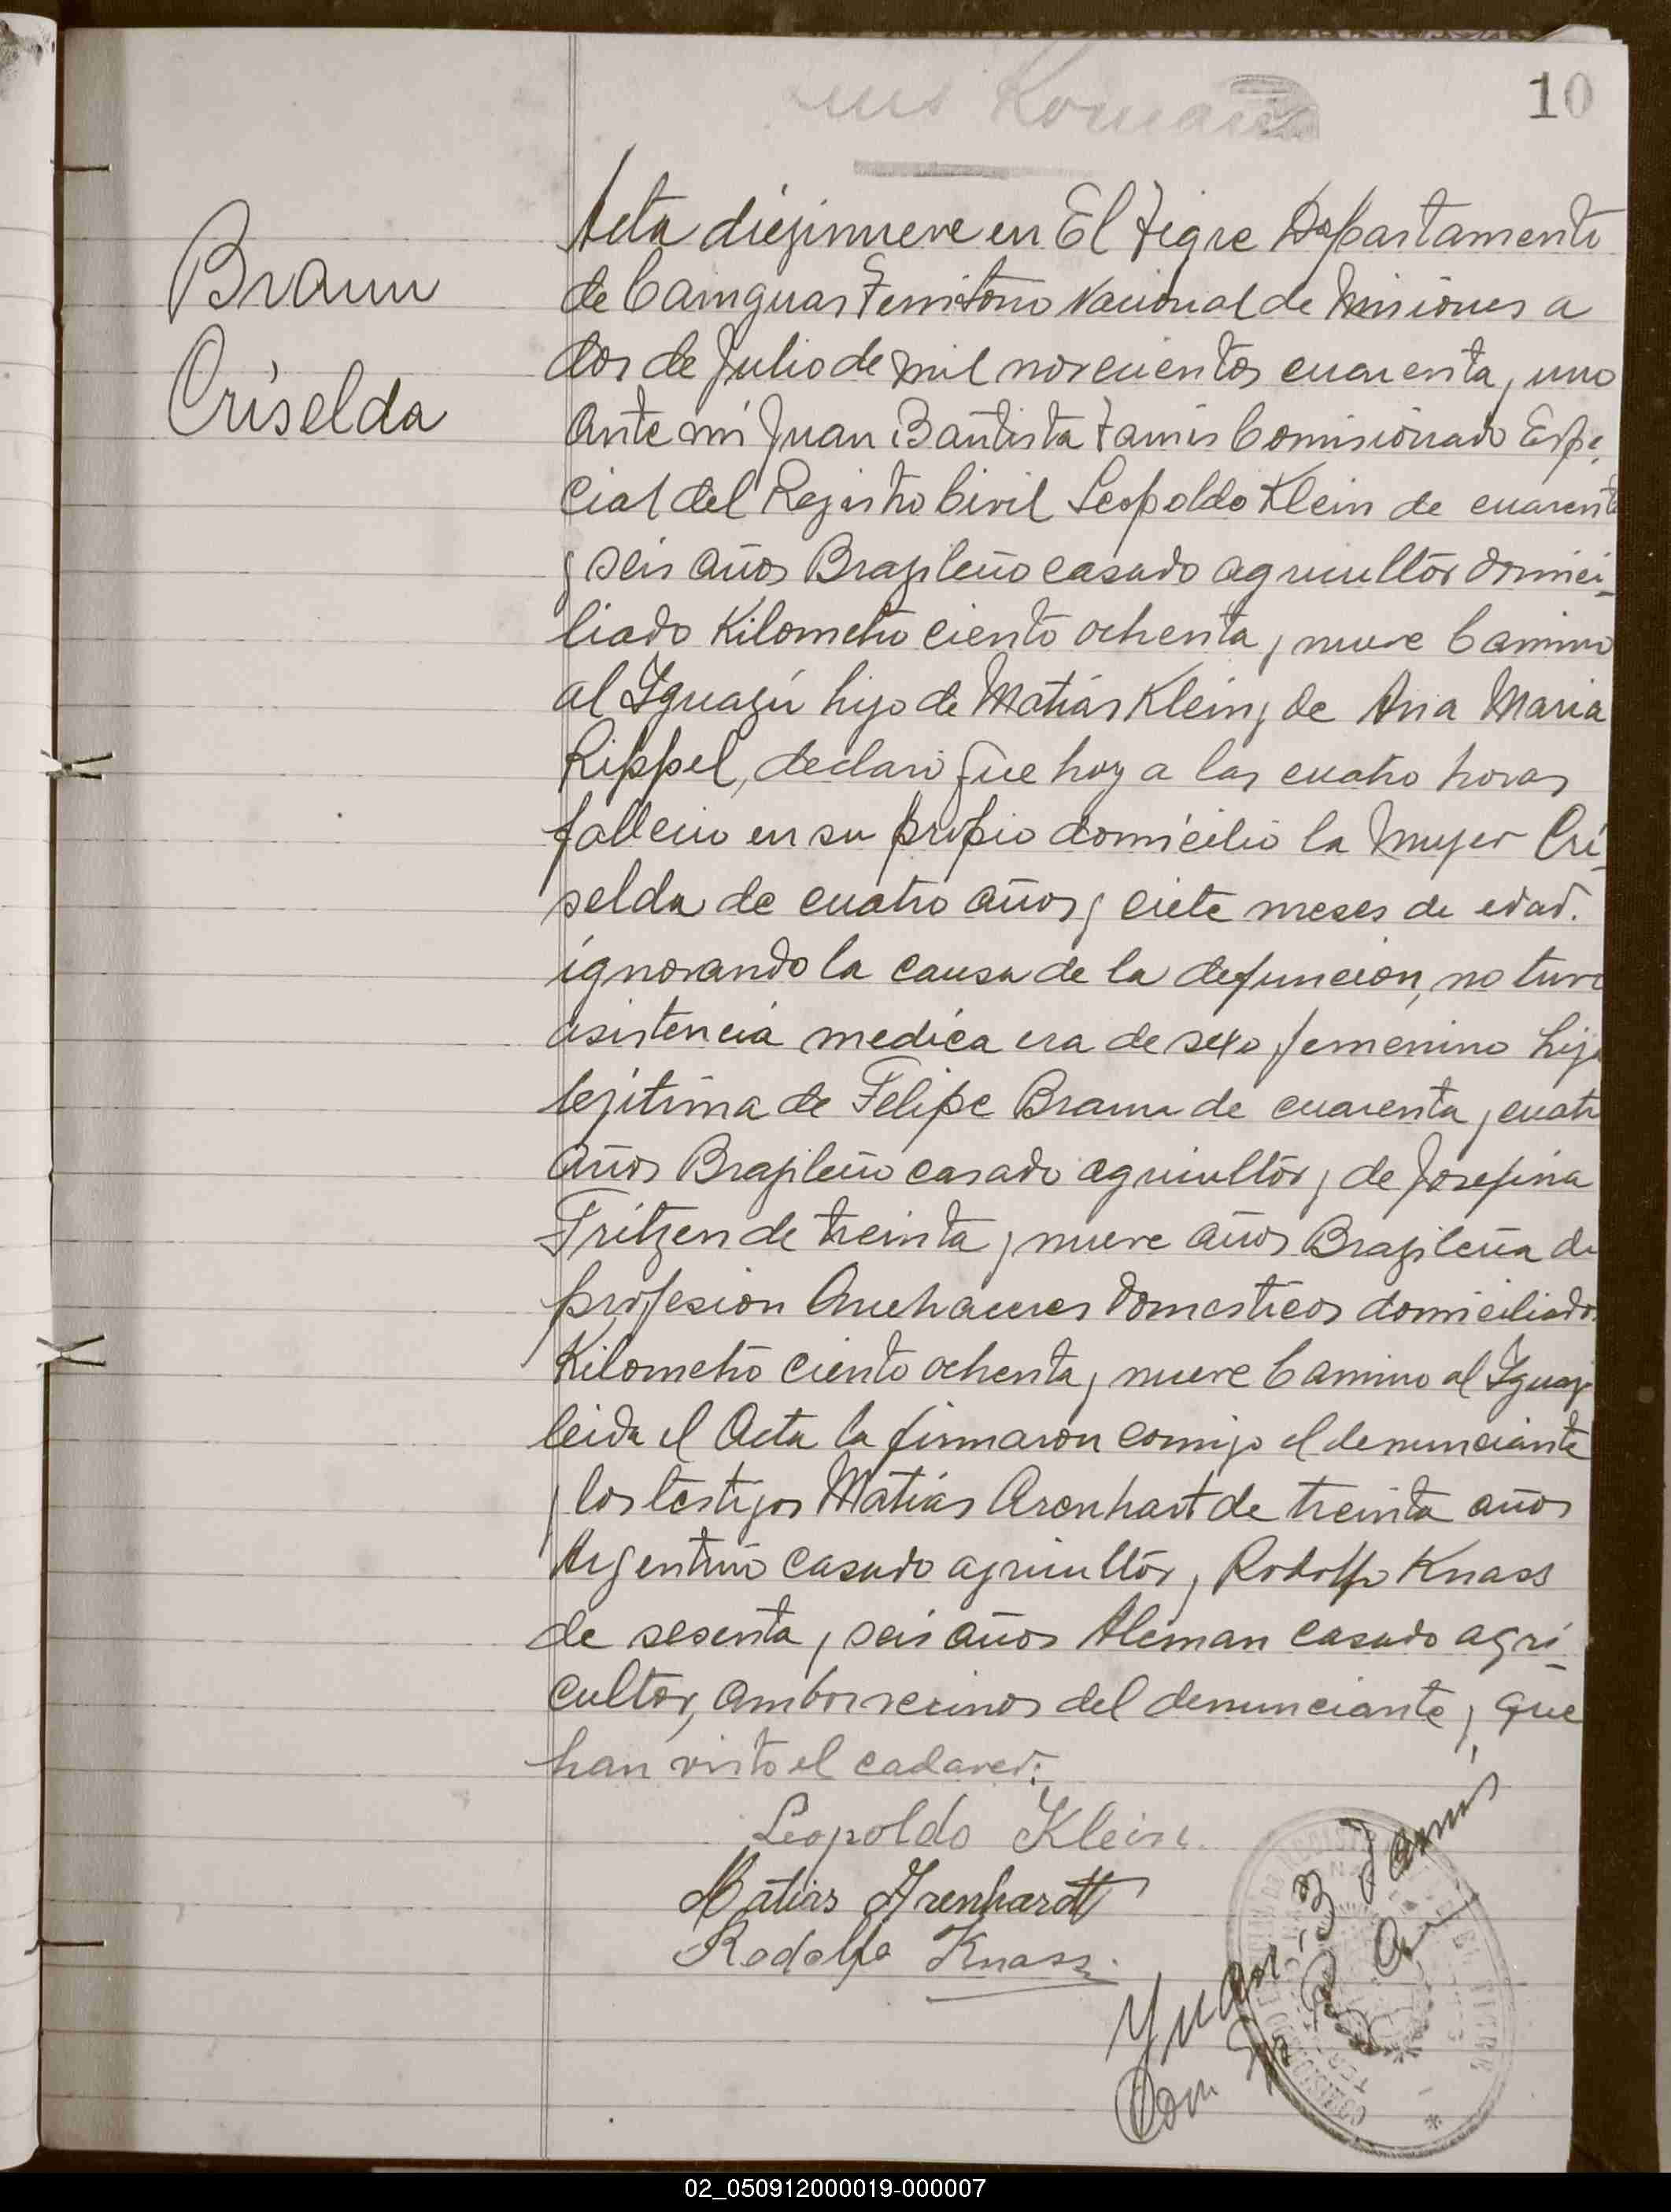 10
Braun
Criselda
Acta diezinueve en El Tigre Departamento
de Cainguas Territorio Nacional de Misiones a
dos de Julio de mil novecientos cuarenta y uno
ante mi Juan Bautista Tamis Comisionado Espe-
cial del Registro Civil Leopoldo Klein de cuarenta
y seis años Brazileño casado agricultor domici-
liado Kilometro ciento ochenta y nueve Camino
al Iguazú hijo de Matias Klein y de Ana Maria
Rippel, declaró que hoy a las cuatro horas
fallecio en su propio domicilio la Mujer Cri-
selda de cuatro años y ciete meses de edad.
ignorando la causa de la defuncion, no tuvo
asistencia medica era de sexo femenino hija
lejitima de Felipe Braun de cuarenta y cuatro
años Brazileño casado agricultor y de Josefina
Fritzen de treinta y nueve años Brazileña de
profesion Quehaceres domesticos domiciliados
Kilometro ciento ochenta y nueve Camino al Iguazu
leida el Acta la firmaron comigo el denunciante
y los testigos Matias Arenhart de treinta años
Argentino casado agricultor y Rodolfo Knass
de sesenta y seis años Aleman casado agri-
cultor, ambos vecinos del denunciante y que
han visto el cadaver.
Leopoldo Klein
Matias Arenhardt
Rodolfo Knass.
Juan B Tamis
02_050912000019-000007